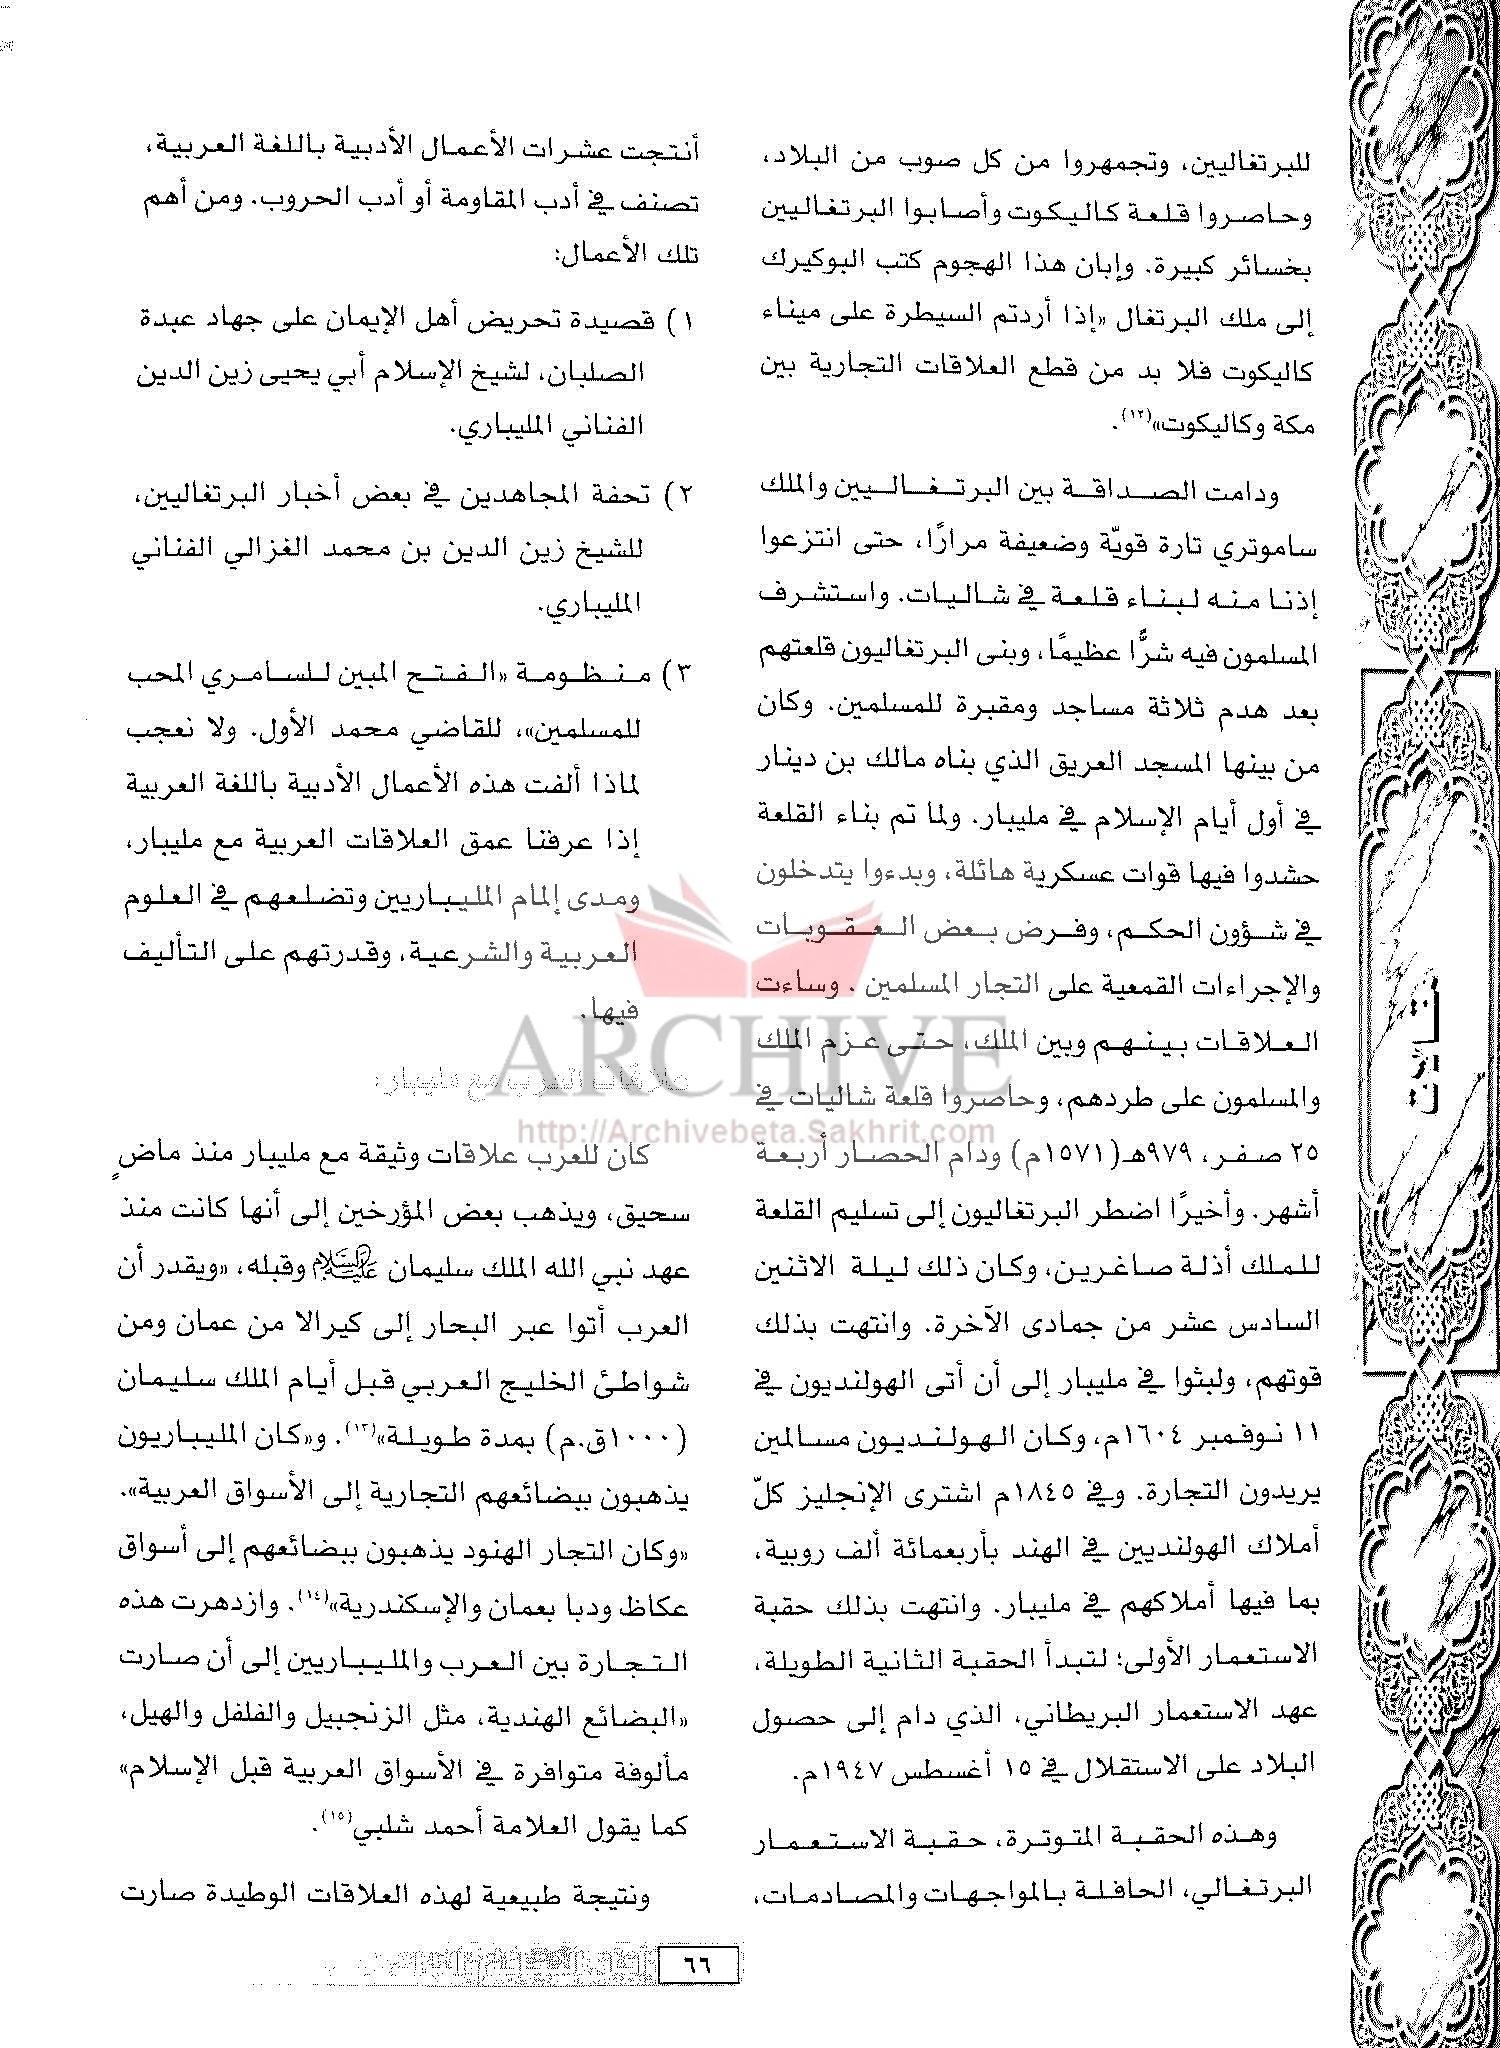 للبرتغاليين، وتجمهروا من كل صوب من البلاد،
وحاصروا قلعة كاليكوت وأصابوا البرتغاليين
بخسائر كبيرة. وإبان هذا الهجوم كتب البوكيرك
إلى ملك البرتغال «إذا أردتم السيطرة على ميناء
كاليكوت فلا بد من قطع العلاقات التجارية بين
مكة وكاليكوت»(١٢).
ودامت الصداقة بين البرتغاليين والملك
ساموتري تارة قويّة وضعيفة مرارًا، حتى انتزعوا
إذنا منه لبناء قلعة في شاليات. واستشرف
المسلمون فيه شرًّا عظيمًا، وبنى البرتغاليون قلعتهم
بعد هدم ثلاثة مساجد ومقبرة للمسلمين. وكان
من بينها المسجد العريق الذي بناه مالك بن دينار
في أول أيام الإسلام في مليبار. ولما تم بناء القلعة
حشدوا فيها قوات عسكرية هائلة، وبدءوا يتدخلون
في شؤون الحكم، وفرض بعض العقوبات
والإجراءات القمعية على التجار المسلمين . وساءت
العلاقات بينهم وبين الملك، حتى عزم الملك
والمسلمون على طردهم، وحاصروا قلعة شاليات في
٢٥ صفر، ٩٧٩هـ(١٥٧١م) ودام الحصار أربعة
أشهر. وأخيرًا اضطر البرتغاليون إلى تسليم القلعة
للملك أذلة صاغرين، وكان ذلك ليلة الاثنين
السادس عشر من جمادى الآخرة. وانتهت بذلك
قوتهم، ولبثوا في مليبار إلى أن أتى الهولنديون في
١١ نوفمبر ١٦٠٤م، وكان الهولنديون مسالمين
يريدون التجارة. وفي ١٨٤٥م اشترى الإنجليز كلّ
أملاك الهولنديين في الهند بأربعمائة ألف روبية،
بما فيها أملاكهم في مليبار. وانتهت بذلك حقبة
الاستعمار الأولى؛ لتبدأ الحقبة الثانية الطويلة،
عهد الاستعمار البريطاني، الذي دام إلى حصول
البلاد على الاستقلال في ١٥ أغسطس ١٩٤٧م.
وهذه الحقبة المتوترة، حقبة الاستعمار
البرتغالي، الحافلة بالمواجهات والمصادمات،
أنتجت عشرات الأعمال الأدبية باللغة العربية،
تصنف في أدب المقاومة أو أدب الحروب. ومن أهم
تلك الأعمال:
١) قصيدة تحريض أهل الإيمان على جهاد عبدة
الصلبان، لشيخ الإسلام أبي يحيى زين الدين
الفناني المليباري.
٢) تحفة المجاهدين في بعض أخبار البرتغاليين،
للشيخ زين الدين بن محمد الغزالي الفناني
المليباري.
٣) منظومة «الفتح المبين للسامري المحب
للمسلمين»، للقاضي محمد الأول. ولا نعجب
لماذا ألفت هذه الأعمال الأدبية باللغة العربية
إذا عرفنا عمق العلاقات العربية مع مليبار،
ومدى إلمام المليباريين وتضلعهم في العلوم
العربية والشرعية، وقدرتهم على التأليف
فيها.
علاقات العرب مع مليبار:
كان للعرب علاقات وثيقة مع مليبار منذ ماضٍ
سحيق، ويذهب بعض المؤرخين إلى أنها كانت منذ
عهد نبي الله الملك سليمان عليه السلام وقبله، «ويقدر أن
العرب أتوا عبر البحار إلى كيرالا من عمان ومن
شواطئ الخليج العربي قبل أيام الملك سليمان
(١٠٠٠ق.م) بمدة طويلة»(١٣). و«كان المليباريون
يذهبون ببضائعهم التجارية إلى الأسواق العربية».
«وكان التجار الهنود يذهبون ببضائعهم إلى أسواق
عكاظ ودبا بعمان والإسكندرية»(١٤). وازدهرت هذه
التجارة بين العرب والمليباريين إلى أن صارت
«البضائع الهندية، مثل الزنجبيل والفلفل والهيل،
مألوفة متوافرة في الأسواق العربية قبل الإسلام»
كما يقول العلامة أحمد شلبي(١٥).
ونتيجة طبيعية لهذه العلاقات الوطيدة صارت
مقالات
ARCHIVE
http://Archivebeta.Sakhrit.com
٦٦